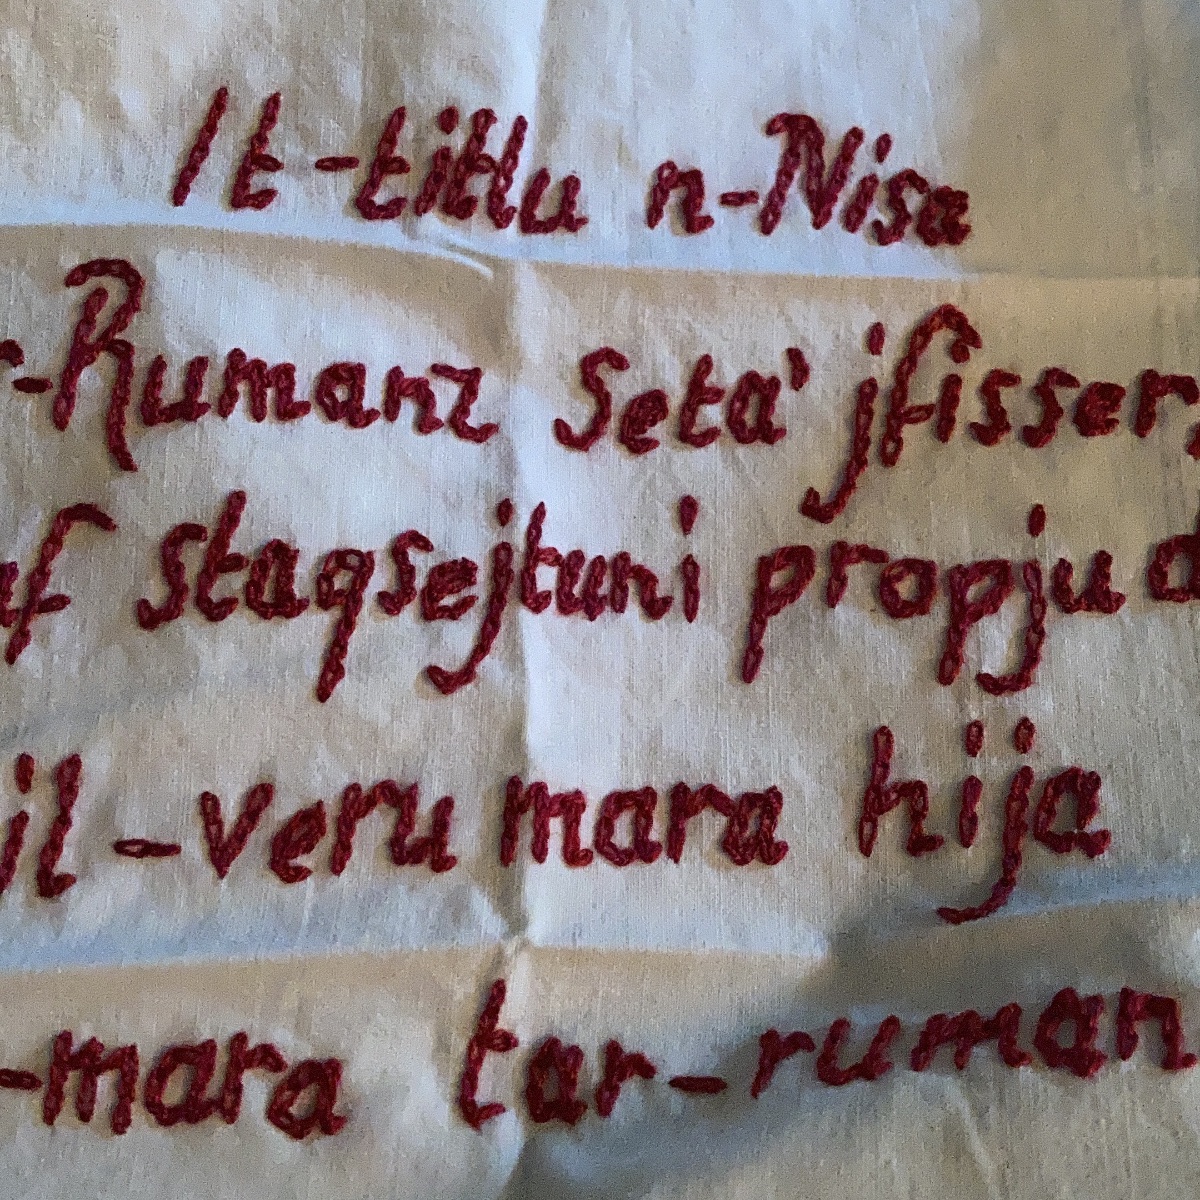 It-titlu n-Nisa
r-Rumanz Seta' jfisser,
af staqsejtuni propju d
jil-veru mara hija
-mara tar-ruman